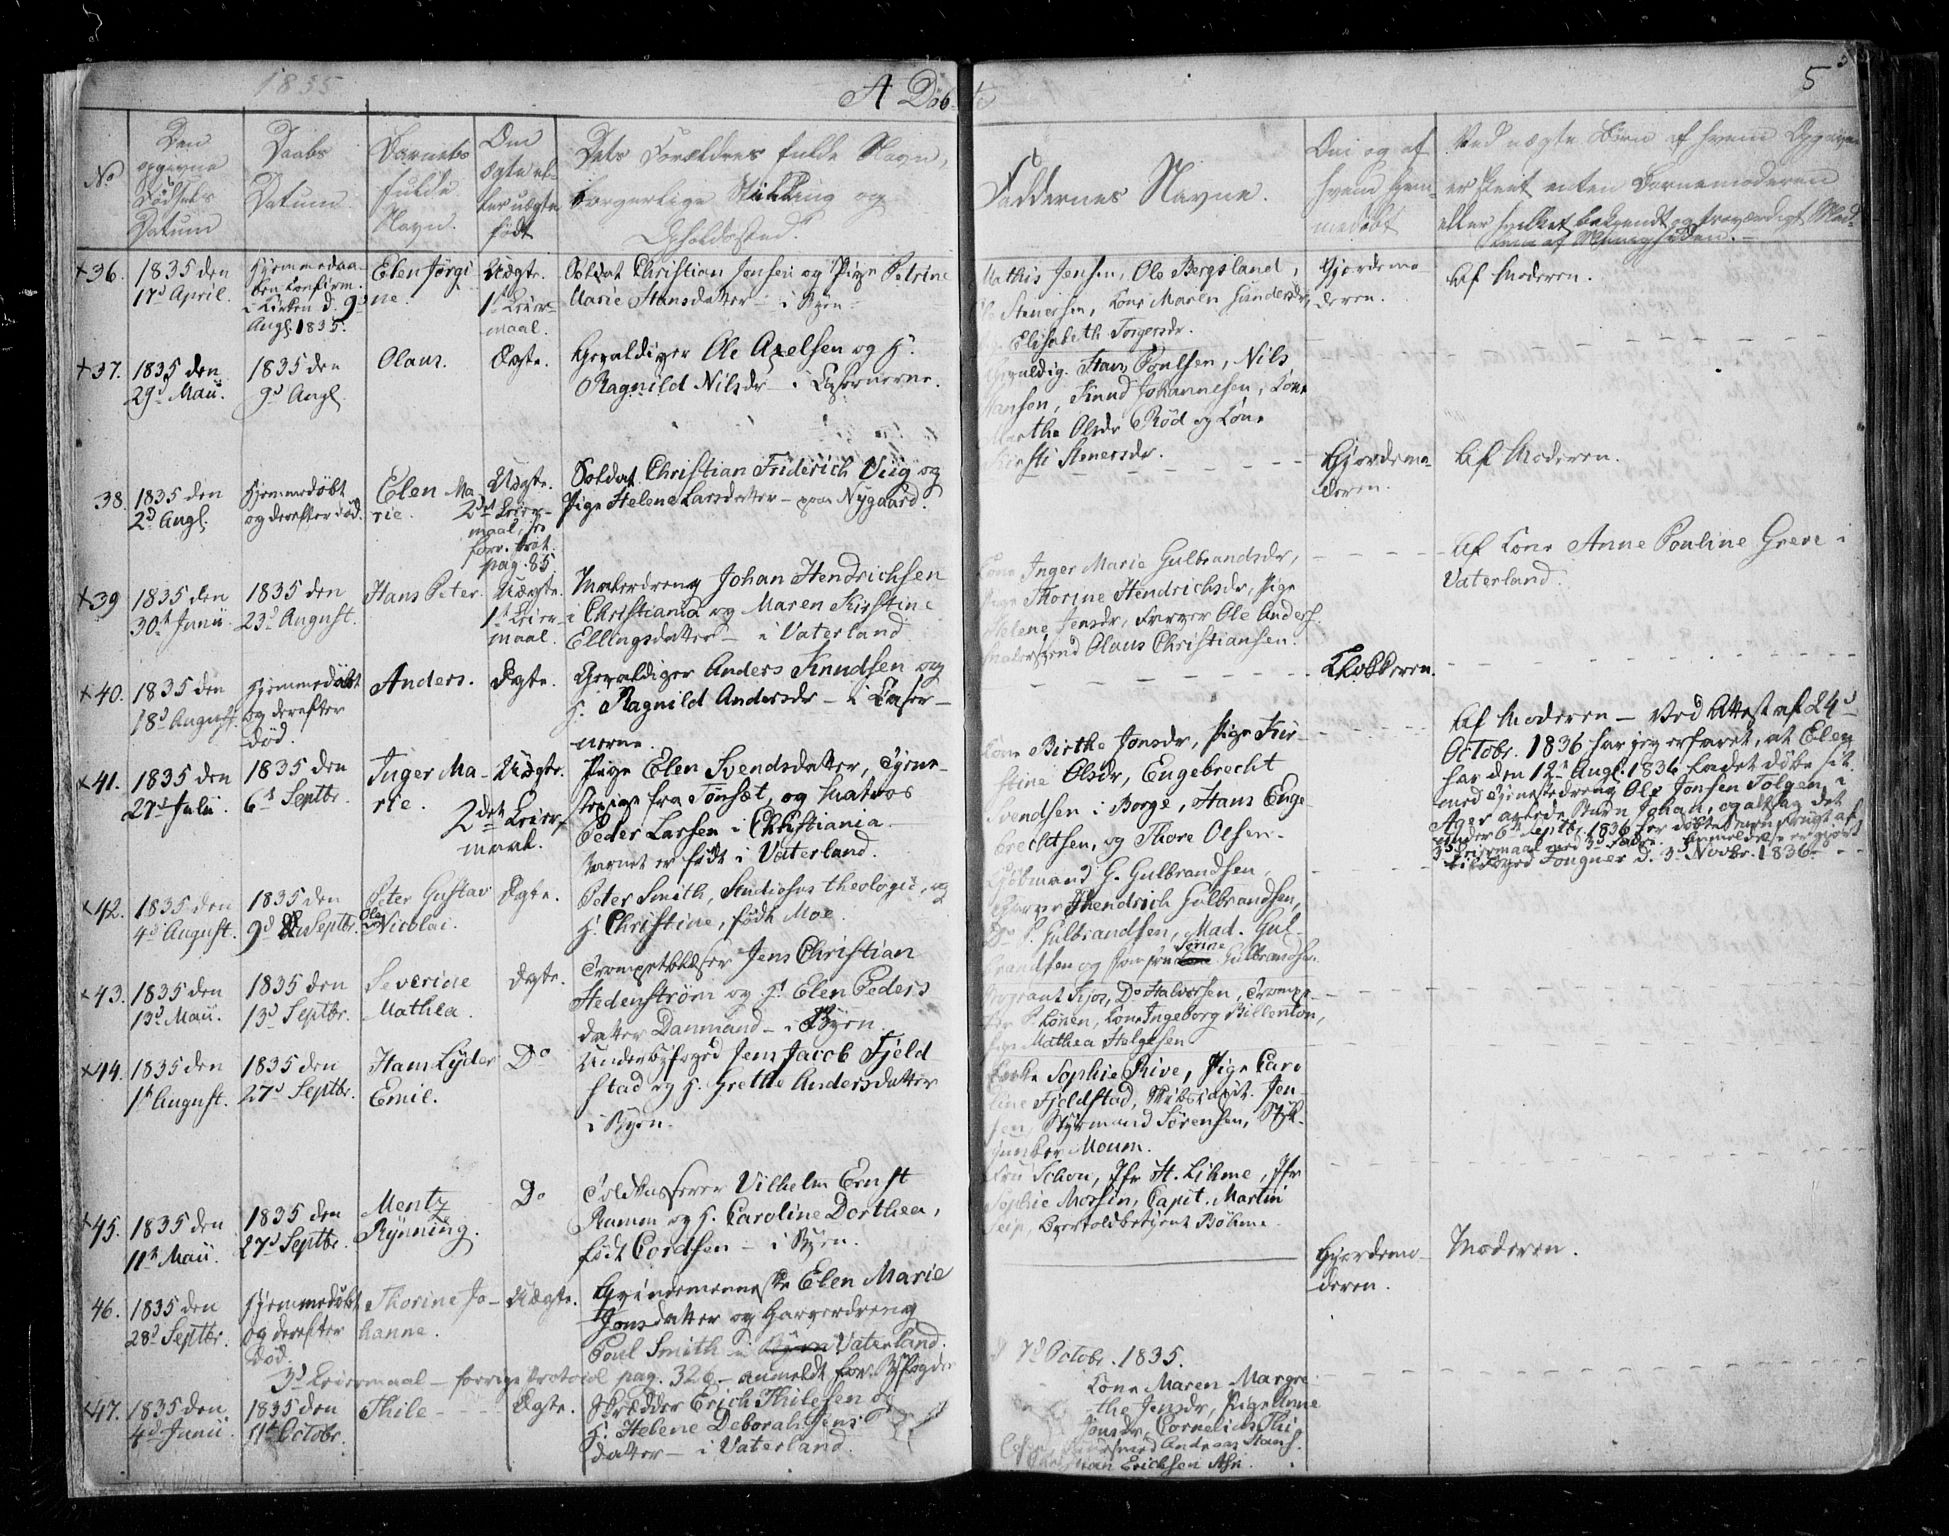 1835
A Døbte
5
No
Den opgivne Fødsels Datum
Daabs Datum
Barnets fulde Navn.
Om ægte eller uægte født
Dets Forældres fulde Navn, borgerlige Stilling og Opholdssted.
Faddernes Navne.
Om og af hvem hjemmedøbt
Ved uægte Børn af hvem Opgaven er skeet enten Barnemoderen eller hvilket bekjendt og troværdigt Medlem af Menigheden.
+36.
1835 den
17d April.
Hjemmedaaben confirm. i Kirken d. 9d Augl. 1835.
Elen Jørgine.
Uægte.
1t Leiermaal.
Soldat Christian Jensen og Pige Petrine
Marie Hansdatter – i Byen
Mathis Jensen, Ole Bergsland,
Stenersen, Kone Maren Gundersdr,
Elisabeth Torgersdr.
Gjordemoderen.
Af Moderen.
+37.
1835 den
29d Maii.
1835 den
9d Augl.
Olaus.
Ægte.
Gevaldiger Ole Axelsen og H.
Ragnild Nilsdr – i Casernerne.
Gevaldig. Hans Poulsen, Nils
Hansen, Knud Johannesen, Kone
Marthe Olsdr Rød og Kone
Kirsti Stenersdr.
38.
1835 den
2d Augl.
Hjemmedøbt
og derefter død.
Elen Marie.
Uægte.
2det Leiermaal, se
forr. Prot.
pag. 85.
Soldat Christian Friderich Viig og
Pige Helene Larsdatter – paa Nygaard.
Gjordemoderen.
Af Moderen.
+39
1835 den
30t Junii.
1835 den
23d August.
Hans Peter.
Uægte.
1t Leiermaal.
Malerdreng Johan Hendrichsen
i Christiania og Maren Kirstine
Ellingsdatter – i Vaterland.
Kone Inger Marie Gulbrandsdr,
Pige Thorine Hendrichsdr, Pige
Helene Jensdr, Farver Ole Anders.
Malersvend Olaus Christiansen.
Af Kone Anne Pouline Greve i
Vaterland.
+40.
1835 den
18d August.
Hjemmedøbt
og derefter
død.
Anders.
Ægte.
Gevaldiger Anders Knudsen og
H. Ragnild Andersdr – i Casernerne.
Klokkeren.
+41.
1835 den
27d Julii
1835 den
6t Septbr.
Inger Marie.
Uægte.
2det Leiermaal.
Pige Elen Svendsdatter, Tjenestepige fra Tønsæt, og Matros
Peder Larsen i Christiania.
Barnet er født i Vaterland.
Kone Birthe Jonsdr, Pige Kirstine Olsdr, Engebrecht
Svendsen i Borge, Hans Engebrechtsen, og Thore Olsen.
Af Moderen – Ved Attest af 24d
Octobr. 1836 har jeg erfaret, at Elen
har den 12t Augl. 1836 ladet døbe sit
med Tjenestedreng Ole Jonsen Tolgen i
Ager avlede Barn Johan, og altsaa det
under 6t Septbr. 1836 her døbte Barn Frugt af
3d Leiermaal med 3d Fader. Anmeldelse er gjort
til Foged Fougner d. 3d Novbr. 1836.
+42.
1835 den
4d August.
1835 den
9d Septbr.
Peter Gustav
Olaf
Nicolai.
Ægte.
Peter Smith, Studiosus theologiæ, og
H. Christine, født Moe.
Kjøbmand G. Gulbrandsen,
Garver Hendrich Gulbrandsen,
Do P. Gulbrandsen, Mad. Gulbrandsen og Jomfru Sønne Gulbrandsen.
+43.
1835 den
13d Maii.
1835 den
13d Septbr.
Severine
Mathea.
Ægte.
Trompetblæser Jens Christian
Hedenstrøm og H. Elen Pedersdatter Danmand – i Byen.
Sergeant Kjos, Do Halvorsen, Trompeter P. Lønen, Kone Ingeborg Billenton,
Pige Mathea Helgesen
+44.
1835 den
1t August.
1835 den
27d Septbr.
Hans Lyder
Emil.
Do
Underbyfoged Jens Jacob Fjeldstad og H. Grethe Andersdatter
i Byen.
Enke Sophie Rive, Pige Caroline Fjeldstad, Skibscapit. Jensen, Styrmand Sørensen, Stykjunker Moum.
+45.
1835 den
11t Maii.
1835 den
27d Septbr.
Mentz
Rynning.
Do
Toldkasserer Vilhelm Ernst
Ramm og H. Caroline Dorthea,
født Cordsen – i Byen.
Fru Schou, Jfr H. Lihme, Jfr
Sophie Massin, Capit. Martin
Seip, Overtoldbetjent Bøhme.
46.
1835 den
28d Septbr.
Hjemmedøbt
og derefter
død.
Thorine Johanne.
Uægte.
Qvindemenneske Elen Marie
Jonsdatter og Garverdreng
Poul Smith – i Vaterland.
3d Leiermaal – forrige Protocol pag. 326 – anmeldt for Byfogden
d. 7d Octobr. 1835.
Gjordemoderen.
Moderen.
+47.
1835 den
4d Junii.
1835 den
11t Octobr.
Thile
Ægte.
Skrædder Erich Thilesen og
H. Helene Deborah Jensdatter – i Vaterland.
Kone Maren Margrethe Jensdr, Pige Anne
Jonsdr, Cornelius Thi
Andreas Hans.
Erichsen Assn.